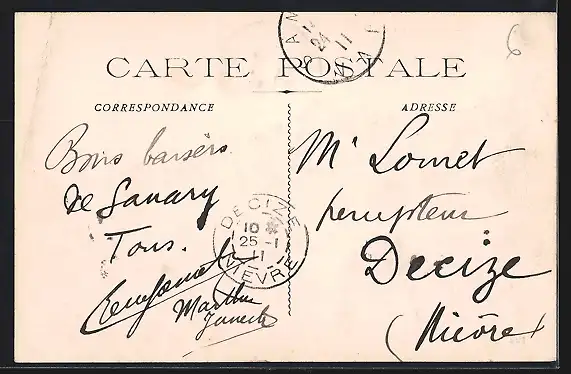 CARTE POSTALE
CORRESPONDANCE
Bons baisers
de Sanary
Tous.
Marthe
ADRESSE
Mr Lomet
percepteur
Decize
(Nièvre)
DECIZE
10
25 -1
11
NIEVRE
24
11